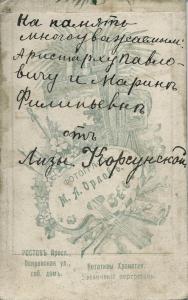 На память
многоуважаемым
Аристарху Павло-
вичу и Марине
Филипьевне
отъ
Лизы Корсунской.
ФОТОГРАФ
М. А. Орлова
РОСТОВЪ Яросл.
Покровская ул.,
соб. домъ.
Негативы Хранятся.